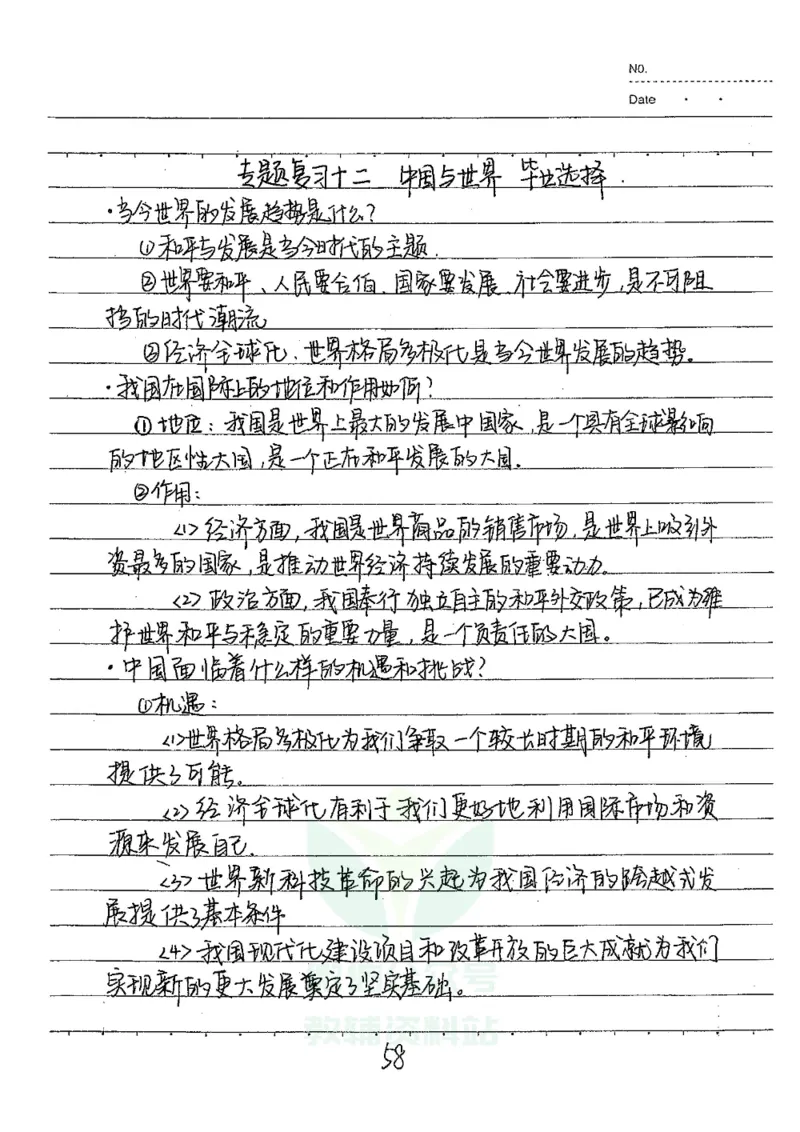 NO.
Date
专题复习十二 中国与世界 毕业选择.
·当今世界的发展趋势是什么?
①和平与发展是当今时代的主题.
②世界要和平、人民要合作、国家要发展、社会要进步,是不可阻
挡的时代潮流
③经济全球化、世界格局多极化是当今世界发展的趋势。
·我国在国际上的地位和作用如何?
①地位:我国是世界上最大的发展中国家,是一个具有全球影响
的地区性大国,是一个正在和平发展的大国.
②作用:
<1>经济方面,我国是世界商品的销售市场,是世界上吸引外
资最多的国家,是推动世界经济持续发展的重要动力。
<2>政治方面,我国奉行独立自主的和平外交政策,已成为维
护世界和平与稳定的重要力量,是一个负责任的大国。
·中国面临着什么样的机遇和挑战?
①机遇:
<1>世界格局多极化为我们争取一个较长时期的和平环境
提供了可能。
<2>经济全球化有利于我们更好地利用国际市场和资
源来发展自己.
<3>世界新科技革命的兴起为我国经济的跨越式发
展提供了基本条件
<4>我国现代化建设项目和改革开放的巨大成就为我们
实现新的更大发展奠定了坚实基础。
教辅资料站
58